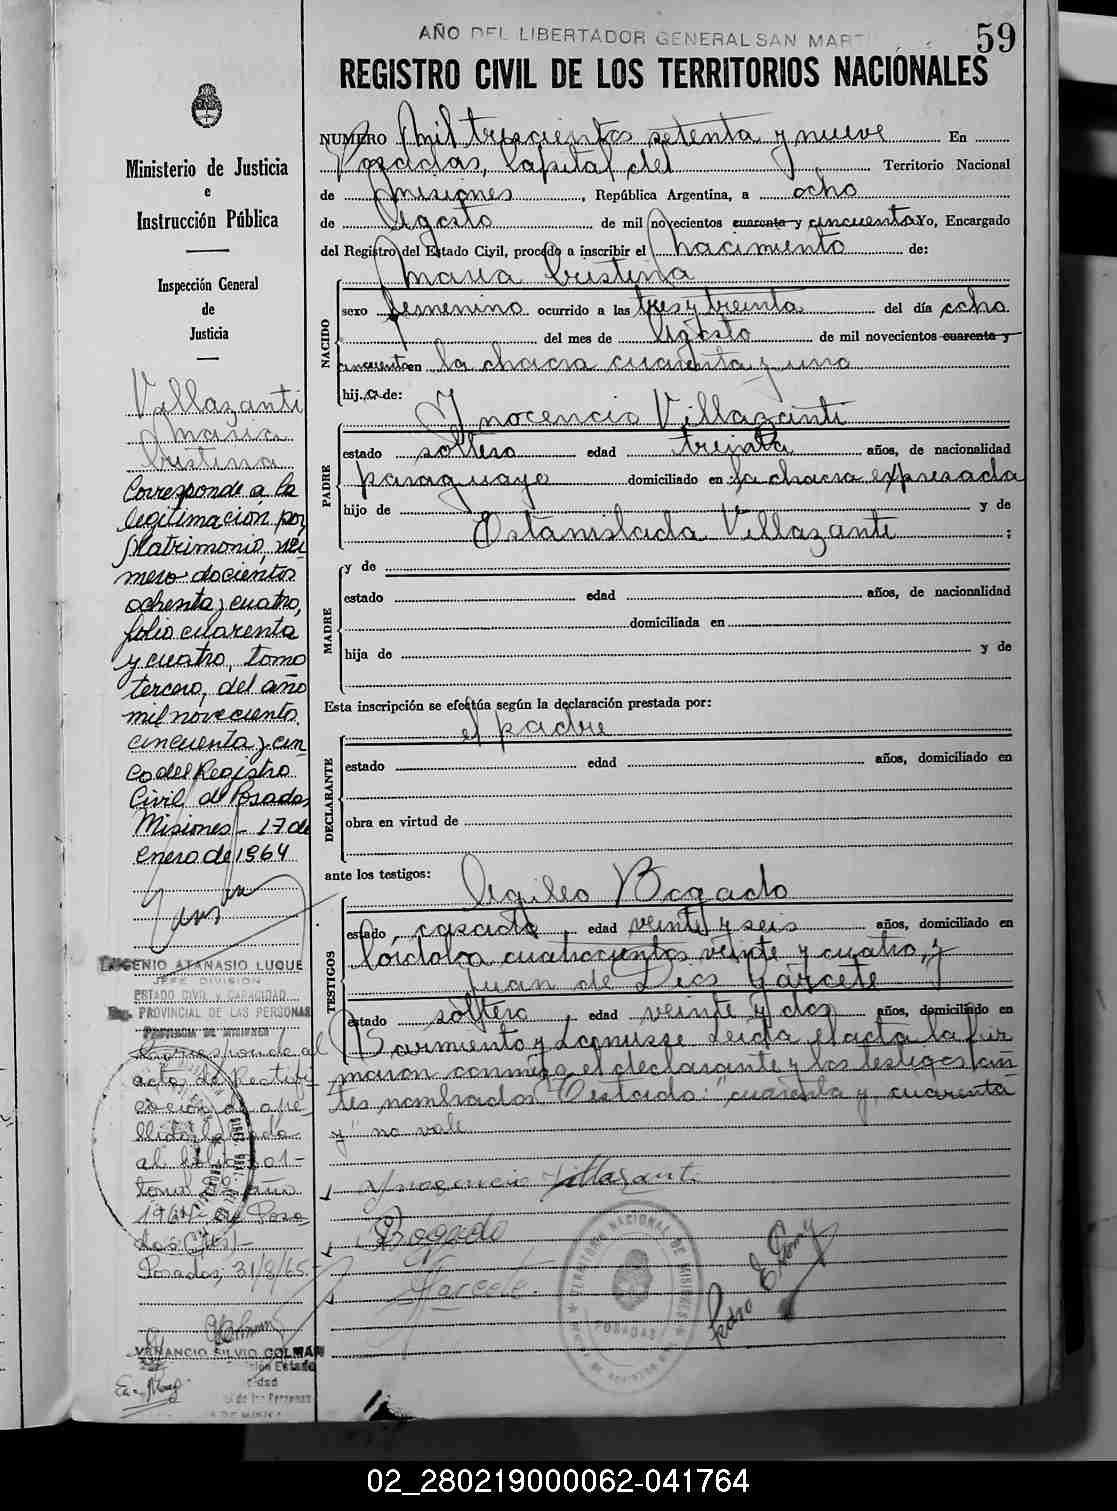 AÑO DEL LIBERTADOR GENERAL SAN MARTI
59
REGISTRO CIVIL DE LOS TERRITORIOS NACIONALES
Ministerio de Justicia
e
Instrucción Pública
Inspección General
de
Justicia
Villazanti
Maria
Cristina
Corresponde a la
legitimación por
Matrimonio, nú-
mero docientos
ochenta y cuatro,
folio cuarenta
y cuatro, tomo
tercero, del año
mil novecientos
cincuenta y cin-
co del Registro
Civil de Posadas
Misiones - 17 de
enero de 1964
EUGENIO ATANASIO LUQUE
JEFE DIVISION
ESTADO CIVIL y CAPACIDAD
PROVINCIAL DE LAS PERSONAS
PROVINCIA DE MISIONES
Corresponde al
acta de Rectifi-
cación de ape-
llido
al folio 201-
tomo año
1965, de Posa-
das (Mnes)-
Posadas, 31/8/65.-
VENANCIO SILVIO COLMAN
NUMERO Mil trescientos setenta y nueve En
Posadas, Capital del Territorio Nacional
de Misiones, República Argentina, a ocho
de Agosto de mil novecientos cuarenta y cincuenta Yo, Encargado
del Registro del Estado Civil, procedo a inscribir el Nacimiento de:
Maria Cristina
NACIDO
sexo femenino ocurrido a las tres y treinta del día ocho
del mes de Agosto de mil novecientos cuarenta y
cincuenta en la chacra cuarenta y uno
hij a de:
PADRE
Inocencio Villazanti
estado soltero edad treinta años, de nacionalidad
paraguayo domiciliado en la chacra expresada
hijo de y de
Estanislada Villazanti ;
MADRE
y de
estado edad años, de nacionalidad
domiciliada en
hija de y de
Esta inscripción se efectúa según la declaración prestada por:
el padre
DECLARANTE
estado edad años, domiciliado en
obra en virtud de
ante los testigos:
TESTIGOS
Agileo Bogado
estado casado, edad veinte y seis años, domiciliado en
Córdoba cuatrocientos veinte y cuatro, y
Juan de Dios Garcete
estado soltero, edad veinte y dos años, domiciliado en
Sarmiento y Lanusse Leida el acta la fir
maron conmigo el declarante y los testigos an
tes nombrados Testado: "cuarenta y, cuarenta
y" no vale
Inocencio Villazanti
Bogado
Garcete.
TERRITORIO NACIONAL DE MISIONES
POSADAS
Pedro E.
02_280219000062-041764